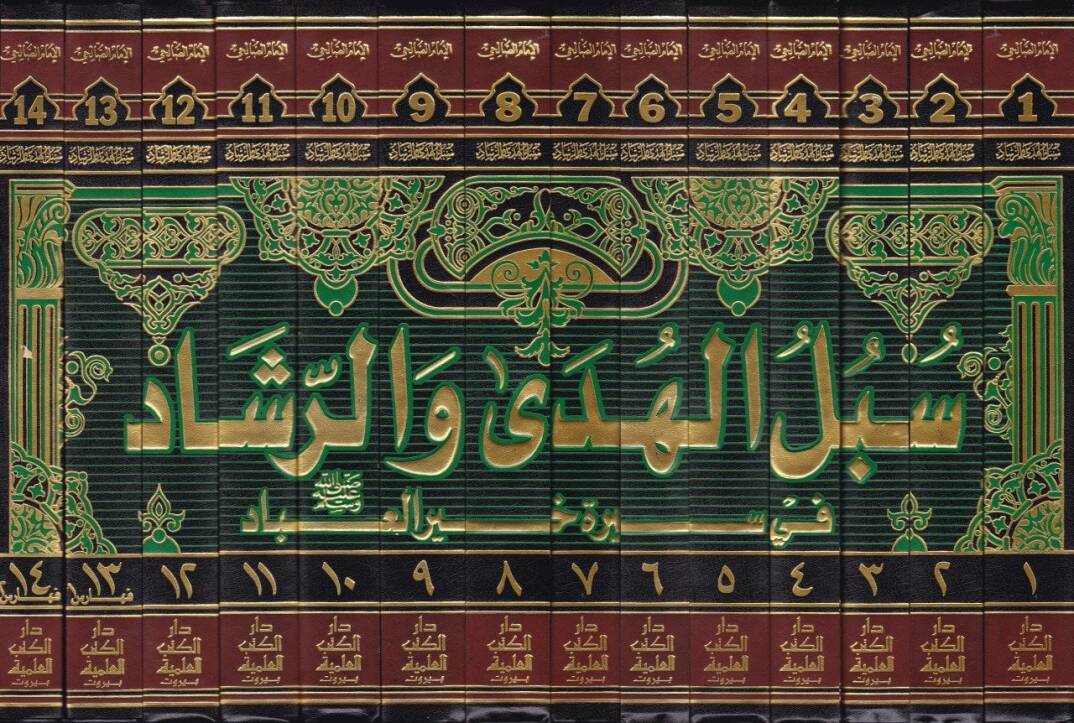 الإمام الصالحي الإمام الصالحي الإمام الصالحي الإمام الصالحي الإمام الصالحي الإمام الصالحي الإمام الصالحي الإمام الصالحي الإمام الصالحي الإمام الصالحي الإمام الصالحي الإمام الصالحي الإمام الصالحي الإمام الصالحي
1 2 3 4 5 6 7 8 9 10 11 12 13 14
سبل الهدى والرشاد سبل الهدى والرشاد سبل الهدى والرشاد سبل الهدى والرشاد سبل الهدى والرشاد سبل الهدى والرشاد سبل الهدى والرشاد سبل الهدى والرشاد سبل الهدى والرشاد سبل الهدى والرشاد سبل الهدى والرشاد سبل الهدى والرشاد سبل الهدى والرشاد سبل الهدى والرشاد
سُبُلُ الهُدَىٰ وَالرّشَاد
في سيرة خير العباد صلى الله عليه وسلم
١ ٢ ٣ ٤ ٥ ٦ ٧ ٨ ٩ ١٠ ١١ ١٢ ١٣ ١٤
فهارس فهارس
دار دار دار دار دار دار دار دار دار دار دار دار دار دار
الكتب الكتب الكتب الكتب الكتب الكتب الكتب الكتب الكتب الكتب الكتب الكتب الكتب الكتب
العلمية العلمية العلمية العلمية العلمية العلمية العلمية العلمية العلمية العلمية العلمية العلمية العلمية العلمية
بيروت بيروت بيروت بيروت بيروت بيروت بيروت بيروت بيروت بيروت بيروت بيروت بيروت بيروت